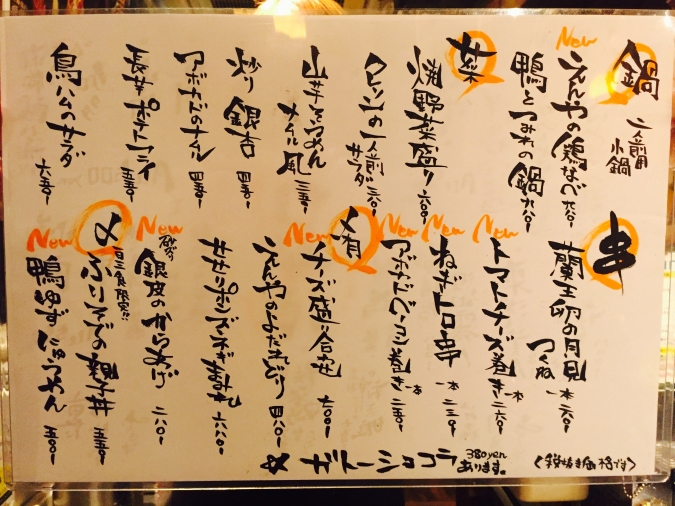 鍋 二人前 小鍋
New
こえんやの鶏なべ 六八〇-
鴨とつみれの鍋 九八〇-
菜
焼野菜盛り 六〇〇-
クレソンの一人前サラダ 三八〇-
山芋そうめん
ナムル風 三五〇-
炒り銀杏 四五〇-
アボカドのナムル 四五〇-
長芋ポテトフライ 五五〇-
鳥ハムのサラダ 六五〇-
串
蘭王卵の月見
つくね 一本 二六〇-
New
トマトチーズ巻き 一本 二六〇-
New
ねぎトロ串 一本 二三〇-
New
アボカドベーコン巻き 一本 二五〇-
肴
New
チーズ盛り合せ 七〇〇-
こえんやのよだれどり 四八〇-
ササリポンズネギまみれ 六八〇-
New
砂ずり
銀皮のからあげ 二八〇-
〆
日に三食限定!!
ぶりそでの親子丼 五五〇-
New
鴨ゆずにゅうめん 五五〇-
〆 ガトーショコラ 380yen
あります。
〈税抜き価格です〉